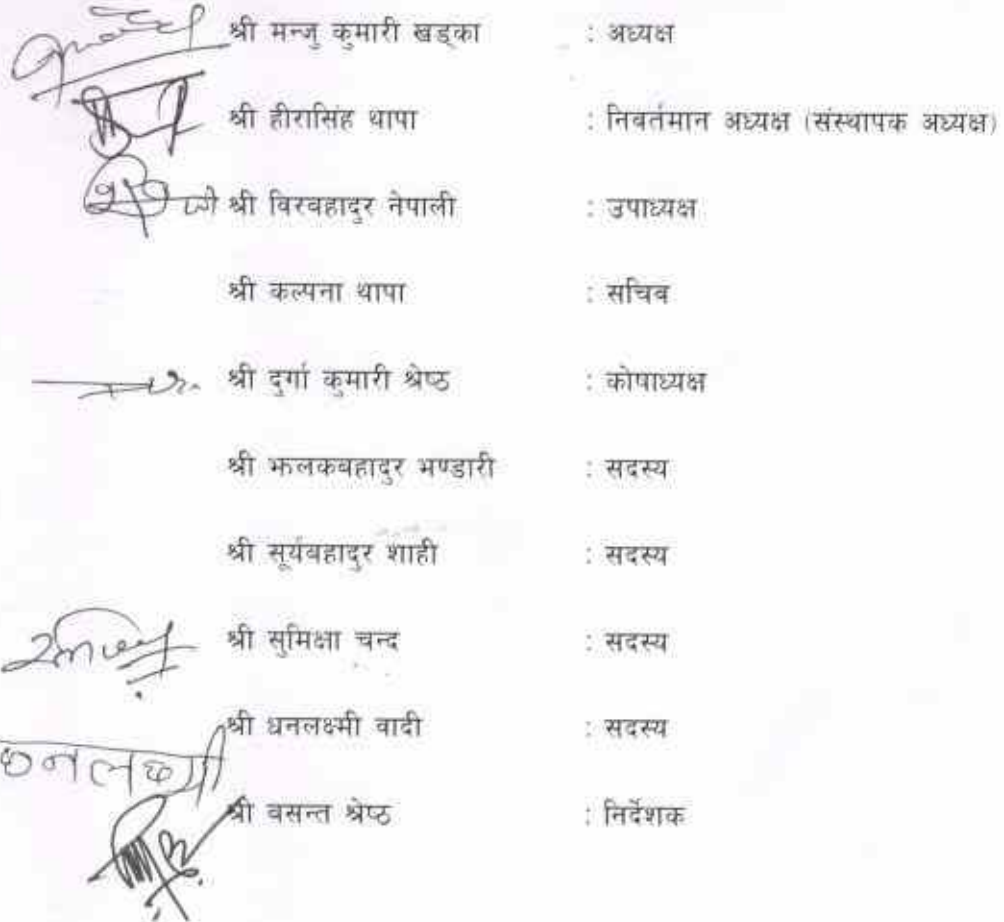 श्री मन्जु कुमारी खड्का : अध्यक्ष
श्री हीरासिंह थापा : निवर्तमान अध्यक्ष (संस्थापक अध्यक्ष)
श्री विरबहादुर नेपाली : उपाध्यक्ष
श्री कल्पना थापा : सचिव
श्री दुर्गा कुमारी श्रेष्ठ : कोषाध्यक्ष
श्री झलकबहादुर भण्डारी : सदस्य
श्री सूर्यबहादुर शाही : सदस्य
श्री सुमिक्षा चन्द : सदस्य
श्री धनलक्ष्मी वादी : सदस्य
श्री वसन्त श्रेष्ठ : निर्देशक